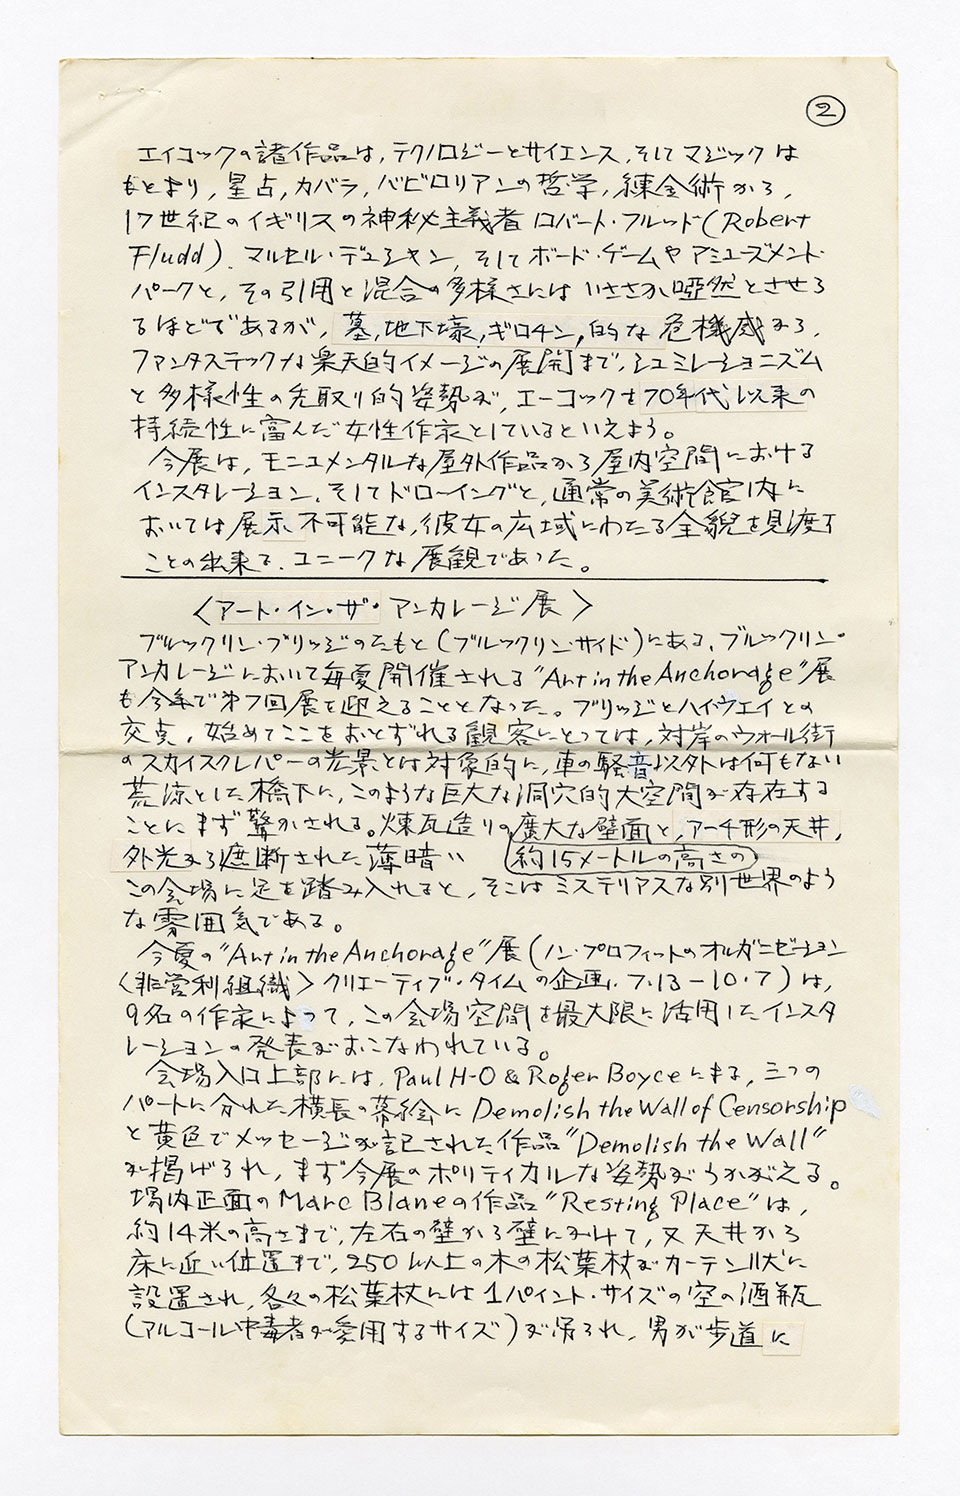 ②
エイコックの諸作品は，テクノロジーとサイエンス，そしてマジックは
もとより，星占，カバラ，バビロリアンの哲学，練金術から，
17世紀のイギリスの神秘主義者 ロバート・フルッド（Robert
Fludd），マルセル・デュシャン，そしてボード・ゲームやアミューズメント・
パークと，その引用と混合の多様さにはいささか啞然とさせら
るほどであるが，墓，地下壕，ギロチン，的な危機感から，
ファンタスティックな楽天的イメージの展開まで，シュミレーショニズム
と多様性の先取り的姿勢が，エーコックを70年代以来の
持続性に富んだ女性作家としているといえよう。
今展は，モニュメンタルな屋外作品から屋内空間における
インスタレーション，そしてドローイングと，通常の美術館内に
おいては展示不可能な，彼女の広域にわたる全貌を見渡す
ことの出来る，ユニークな展観であった。
〈アート・イン・ザ・アンカレージ展〉
ブルックリン・ブリッジのたもと（ブルックリン・サイド）にある，ブルックリン・
アンカレージにおいて毎夏開催される“Art in the Anchorage”展
も今年で第7回展を迎えることとなった。ブリッジとハイウエイとの
交点，始めてここをおとずれる観客にとっては，対岸のウォール街
のスカイスクレパーの光景とは対象的に，車の騒音以外は何もない
荒涼とした橋下に，このような巨大な洞穴的大空間が存在する
ことにまず驚かされる。煉瓦造りの広大な壁面と，アーチ形の天井，
外光から遮断された薄暗い 約15メートルの高さの
この会場に足を踏み入れると，そこはミステリアスな別世界のよう
な雰囲気である。
今夏の“Art in the Anchorage”展（ノン・プロフィットのオルガニゼーション
〈非営利組織〉クリエーティブ・タイムの企画，7.13－10.7）は，
9名の作家によって，この会場空間を最大限に活用したインスタ
レーションの発表がおこなわれている。
会場入口上部には，Paul H-O & Roger Boyceによる，三つの
パートに分れた横長の幕絵に Demolish the Wall of Censorship
と黄色でメッセージが記された作品“Demolish the Wall”
が掲げられ，まず今展のポリティカルな姿勢がうかがえる。
場内正面のMarc Blaneの作品“Resting Place”は，
約14米の高さまで，左右の壁から壁にかけて，又天井から
床に近い位置まで，250以上の木の松葉杖がカーテン状に
設置され，各々の松葉杖には1パイント・サイズの空の酒瓶
（アルコール中毒者が愛用するサイズ）が吊られ，男が歩道に